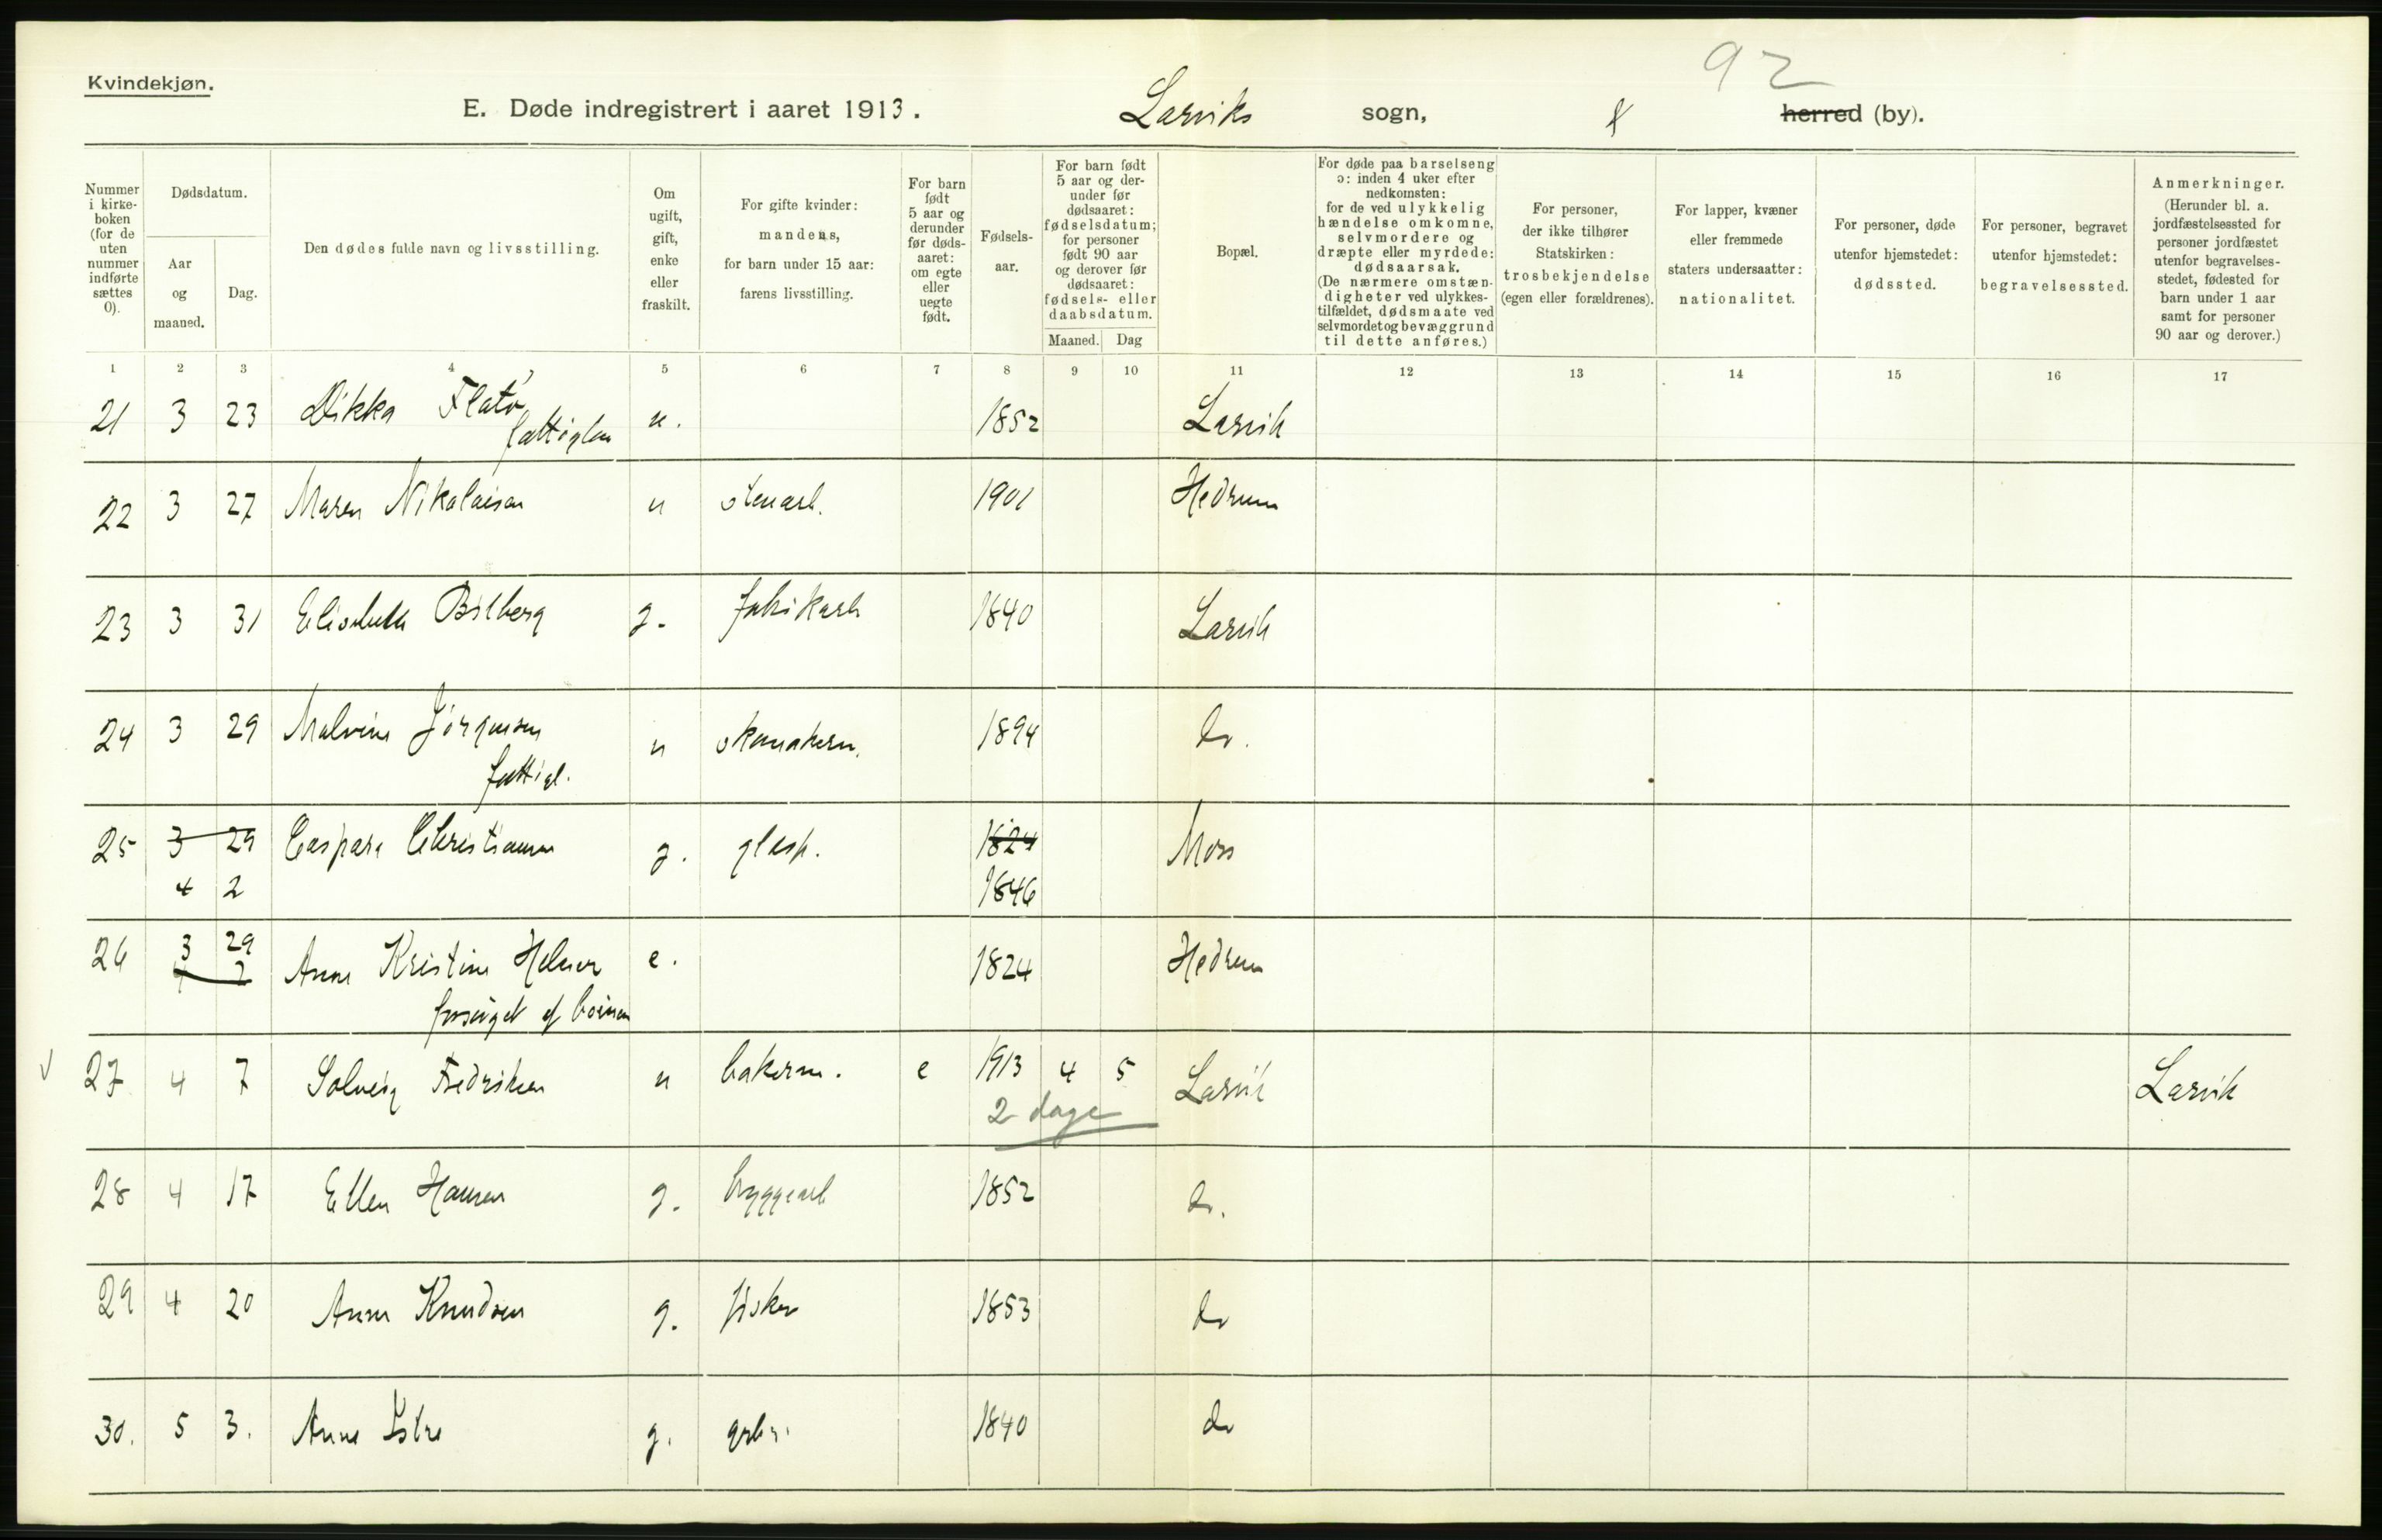 92
Kvindekjøn.
E. Døde indregistrert i aaret 1913. Larviks sogn, herred (by).
Nummer i kirkeboken (for de uten nummer indførte sættes 0).
Dødsdatum.
Aar og maaned.
Dag.
Den dødes fulde navn og livsstilling.
Om ugift, gift, enke eller fraskilt.
For gifte kvinder: mandens, for barn under 15 aar: farens livsstilling.
For barn født 5 aar og derunder før dødsaaret: om egte eller uegte født.
Fødselsaar.
For barn født 5 aar og derunder før dødsaaret: fødselsdatum; for personer født 90 aar og derover før dødsaaret: fødsels- eller daabsdatum.
Maaned. Dag
Bopæl.
For døde paa barselseng ɔ: inden 4 uker efter nedkomsten: for de ved ulykkelig hændelse omkomne, selvmordere og dræpte eller myrdede: dødsaarsak. (De nærmere omstændigheter ved ulykkestilfældet, dødsmaate ved selvmordet og bevæggrund til dette anføres.)
For personer, der ikke tilhører Statskirken: trosbekjendelse (egen eller forældrenes).
For lapper, kvæner eller fremmede staters undersaatter: nationalitet.
For personer, døde utenfor hjemstedet: dødssted.
For personer, begravet utenfor hjemstedet: begravelsessted.
Anmerkninger. (Herunder bl. a. jordfæstelsessted for personer jordfæstet utenfor begravelsesstedet, fødested for barn under 1 aar samt for personer 90 aar og derover.)
1 2 3 4 5 6 7 8 9 10 11 12 13 14 15 16 17
21 3 23 Dikka Flatø u. 1852 Larvik
22 3 27 Maren Nikolaisen u stenarb. 1901 Hedrum
23 3 31 Elisabeth Bilberg g. fabrikarb 1840 Larvik
24 3 29 Malvine Jörgensen u skomakerm. 1894 do.
fattigl.
25 3 29 Caspara Christiansen g. glasp. 1824 Moss
4 2 1846
26 3 29 Anne Kristine Helner e. 1824 Hedrum
4 2
forsørget af børnene
27 4 7 Solveig Fredriksen u bakerm. e 1913 4 5 Larvik Larvik
2 dage
28 4 17 Ellen Hansen g. byggearb 1852 do.
29 4 20 Anne Knudsen g. fisker 1853 do
30. 5 3. Anne Istre g. grbr. 1840 do